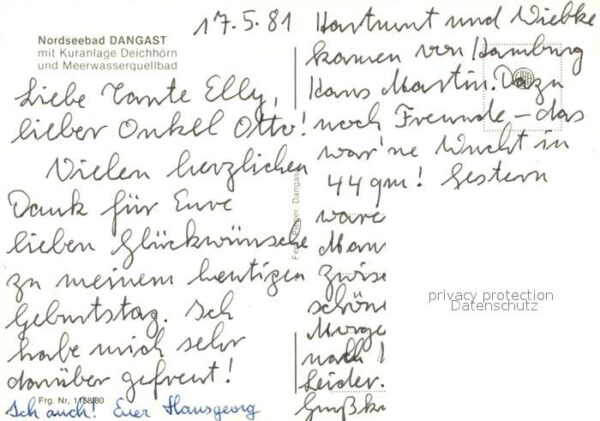 17.5.81
Nordseebad DANGAST
mit Kuranlage Deichhörn
und Meerwasserquellbad
Liebe Tante Elly,
lieber Onkel Otto!
Vielen herzlichen
Dank für Eure
lieben Glückwünsche
zu meinem heutigen
Geburtstag. Ich
habe mich sehr
darüber gefreut!
Frg. Nr. 1158/80
Ich auch! Euer Hansgeorg
Dangast
Hartmut und Wiebke
kamen von Hamburg
Hans Martin. Dazu
noch Freunde – das
war 'ne Wucht in
44 qm! Gestern
ware
Man
zwisc
schöne
Morge
nach
Leider.
Grußka
privacy protection
Datenschutz